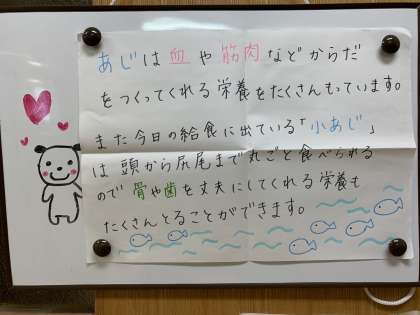 あじは血や筋肉などからだ
をつくってくれる栄養をたくさんもっています。
また今日の給食に出ている「小あじ」
は頭から尻尾まで丸ごと食べられる
ので骨や歯を丈夫にしてくれる栄養も
たくさんとることができます。